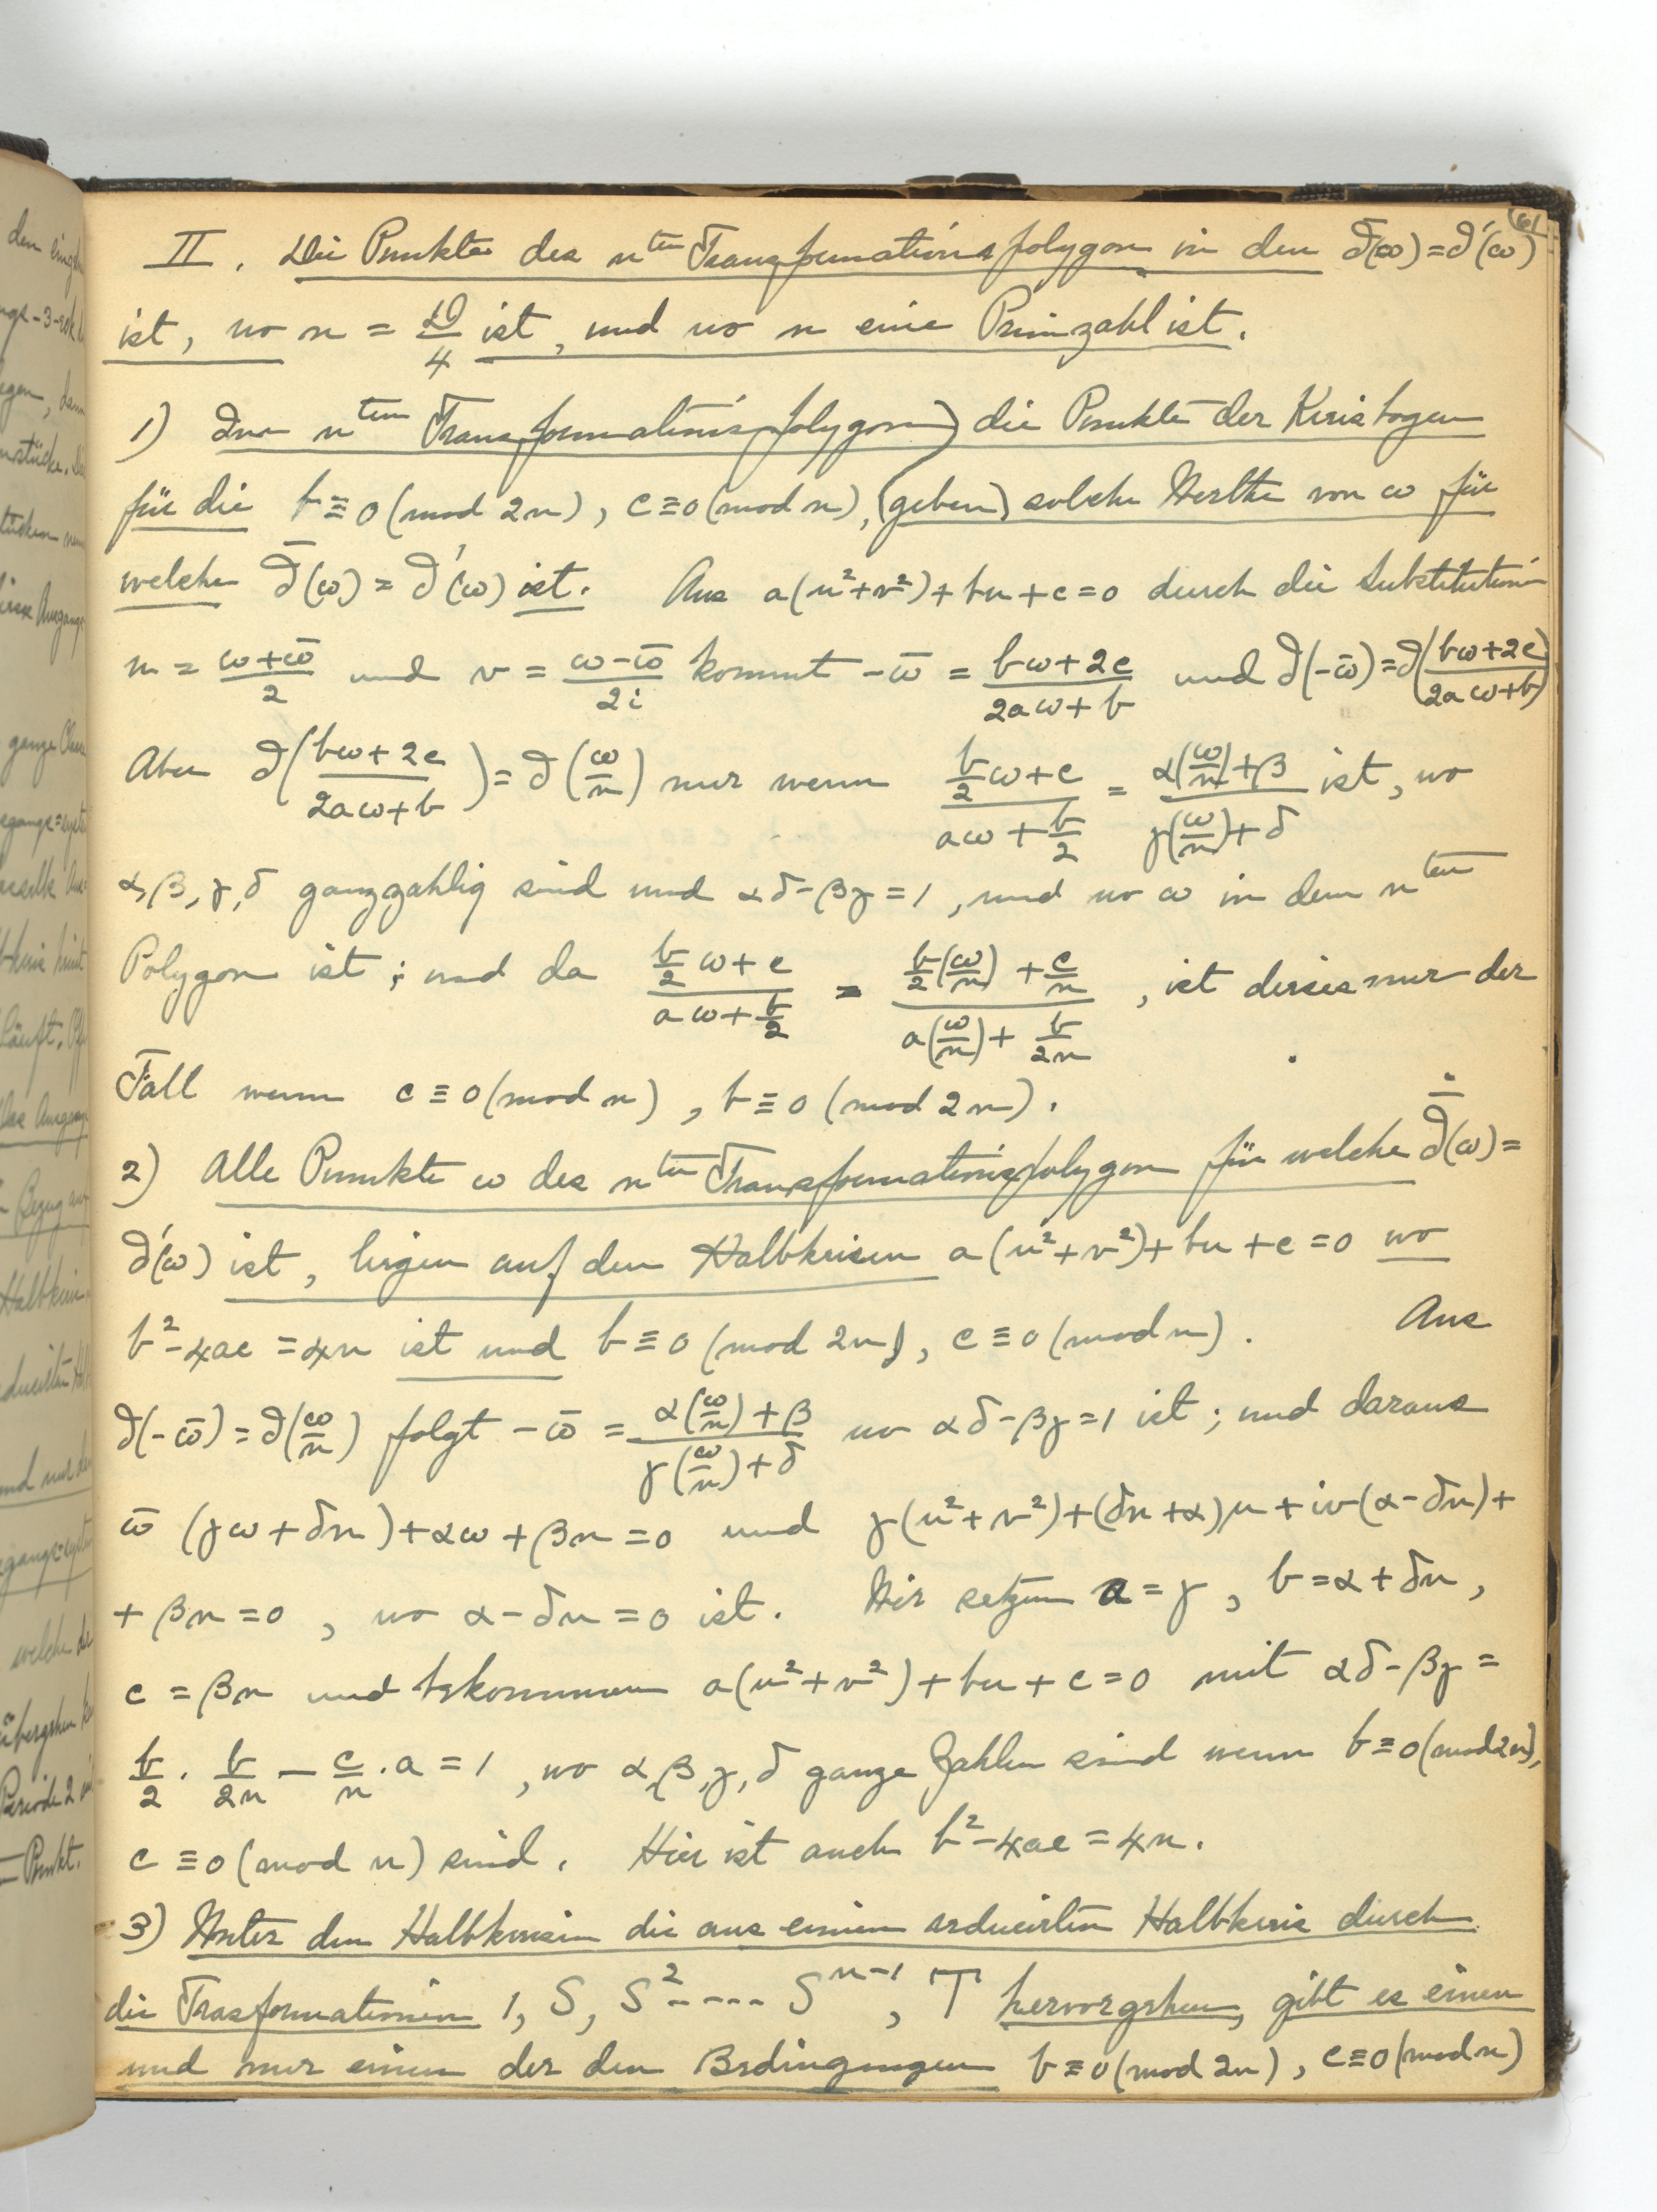 61
II. Die Punkte des n^ten Transformationspolygon in den ∂̄(ω)=∂'(ω)
ist, wo n = D/4 ist, und wo n eine Primzahl ist.
1) Im n^ten Transformationspolygon) die Punkte der Kreisbogen
für die b≡0 (mod 2n), c≡0 (mod n), (geben) solche Werthe von ω für
welche ∂̄(ω) = ∂'(ω) ist. Aus a(u²+v²)+bu+c=0 durch die Substitution
u = (ω+ω̄)/2 und v = (ω-ω̄)/2i kommt -ω̄ = (bω+2c)/(2aω+b) und ∂(-ω̄)=∂((bω+2c)/(2aω+b))
Aber ∂((bω+2c)/(2aω+b)) = ∂(ω/n) nur wenn (b/2 ω+c)/(aω+b/2) = (α(ω/n)+β)/(γ(ω/n)+δ) ist, wo
α,β,γ,δ ganzzahlig sind und αδ-βγ=1, und wo ω in dem n^ten
Polygon ist; und da (b/2 ω+c)/(aω+b/2) = (b/2(ω/n)+c/n)/(a(ω/n)+b/2n), ist dieses nur der
Fall wenn c≡0 (mod n), b≡0 (mod 2n).
2) Alle Punkte ω des n^ten Transformationspolygon für welche ∂̄(ω)=
∂'(ω) ist, liegen auf den Halbkreisen a(u²+v²)+bu+c=0 wo
b²-4ac=4n ist und b≡0 (mod 2n), c≡0 (mod n). Aus
∂(-ω̄)=∂(ω/n) folgt -ω̄ = (α(ω/n)+β)/(γ(ω/n)+δ) wo αδ-βγ=1 ist; und daraus
ω̄ (γω+δn)+αω+βn=0 und γ(u²+v²)+(δn+α)u+iv(α-δn)+
+βn=0, wo α-δn=0 ist. Wir setzen a=γ, b=α+δn,
c=βn und bekommen a(u²+v²)+bu+c=0 mit αδ-βγ=
b/2 · b/2n - c/n · a = 1, wo α,β,γ,δ ganze Zahlen sind wenn b≡0 (mod 2n),
c≡0 (mod n) sind. Hier ist auch b²-4ac=4n.
3) Unter den Halbkreisen die aus einem reducirten Halbkreis durch
die Trasformationen 1, S, S²---- S^n-1, T hervorgehen, gibt es einen
und nur einen der den Bedingungen b≡0 (mod 2n), c≡0 (mod n)